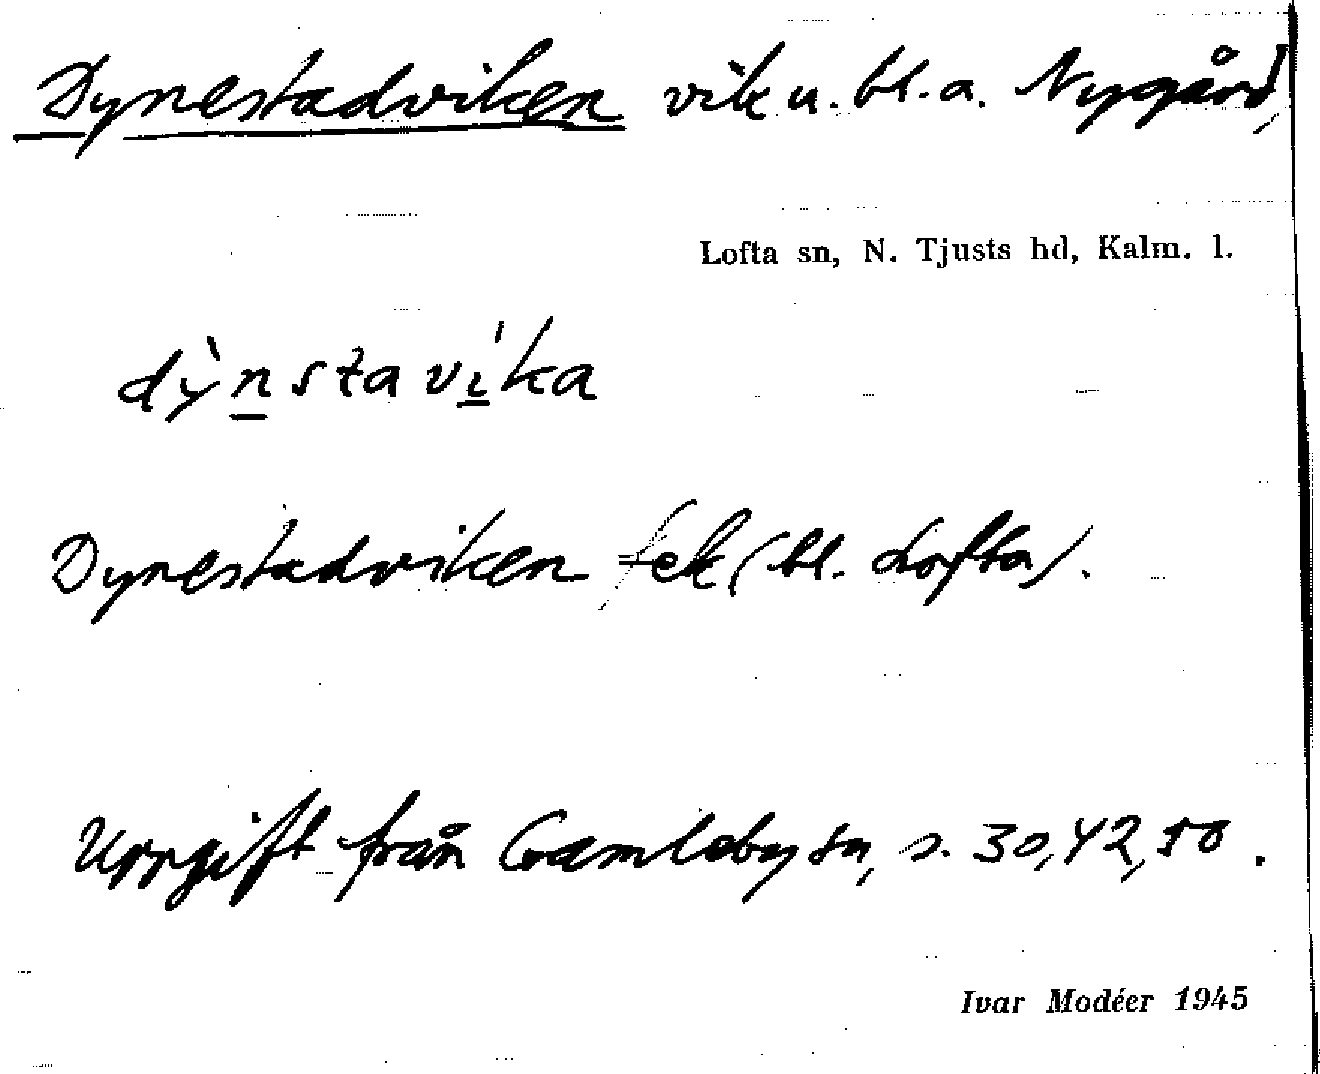 Dynestadviken vik u. bl. a. Nygård,
Lofta sn, N. Tjusts hd, Kalm. l.
dỳnstavı́ka
Dynestadviken ek (bl. Lofta).
Uppgift från Gamleby sn, s. 30, 42, 50.
Ivar Modéer 1945